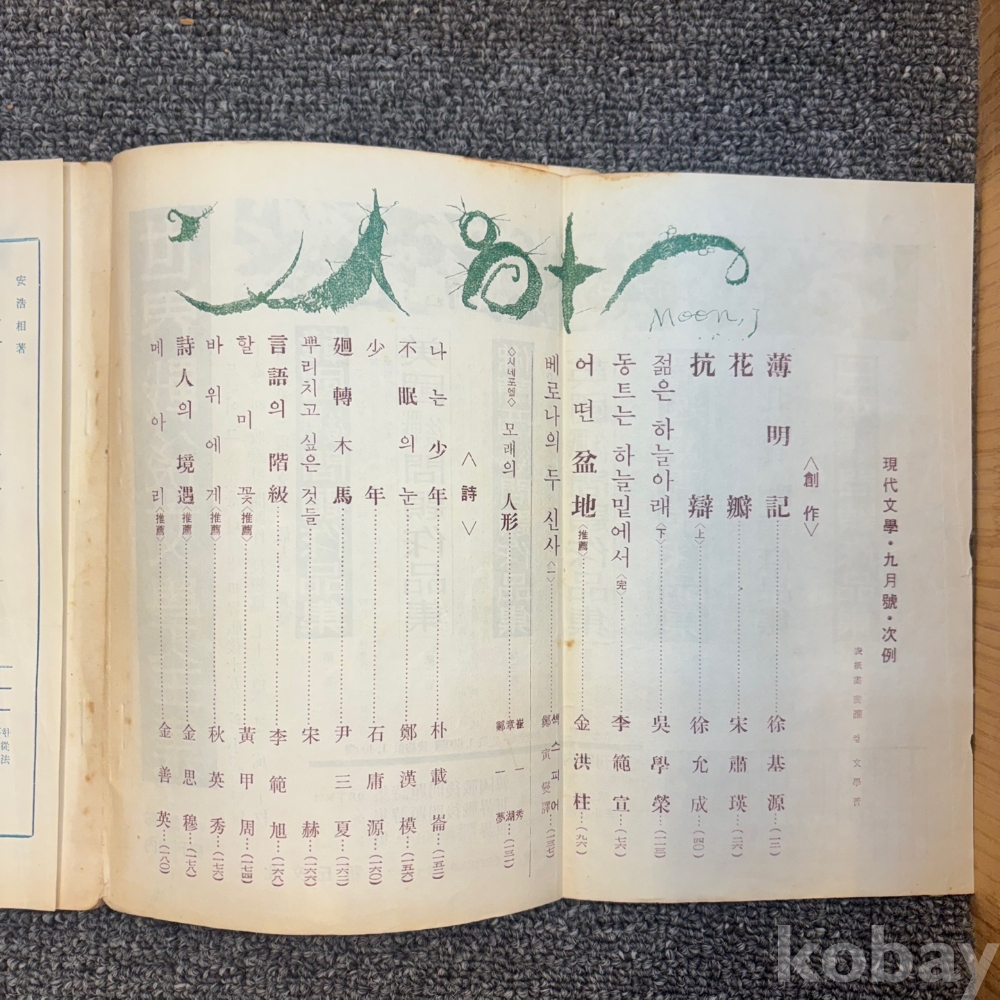 現代文學·九月號·次例
〈創作〉
薄明記 徐基源…(一二)
花瓣 宋肅瑛…(二六)
抗辯〈上〉 徐允成…(四〇)
젊은 하늘아래〈下〉 吳學榮…(一一三)
동트는 하늘밑에서〈完〉 李範宣…(七六)
어떤 盆地〈推薦〉 金洪柱…(九六)
베로나의 두 신사〈一〉
〈시네포엠〉 모래의 人形
〈詩〉
나는 少年 朴載崙…(一五二)
不眠의 눈 鄭漢模…(一五六)
少年 石庸源…(一六〇)
廻轉木馬 尹三夏…(一六二)
뿌리치고 싶은 것들 宋赫…(一六六)
言語의 階級 李範旭…(一六八)
할미꽃〈推薦〉 黃甲周…(一七四)
바위에게〈推薦〉 秋英秀…(一七六)
詩人의 境遇〈推薦〉 金思穆…(一七八)
메아리〈推薦〉 金善英…(一八〇)
Moon, J
安浩相著
kobay